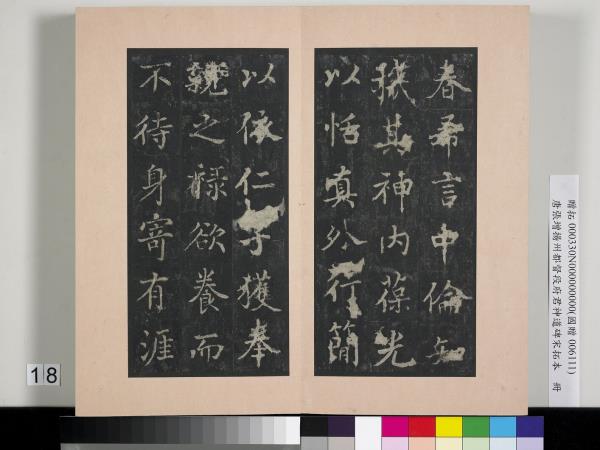 春希言中倫
其神内葆光
以恬真外行簡
以依仁子獲奉
親之祿欲養而
不待身寄有涯
18
贈拓 000330N000000000(國贈 006111)
唐張增揚州都督段府君神道碑宋拓本 冊